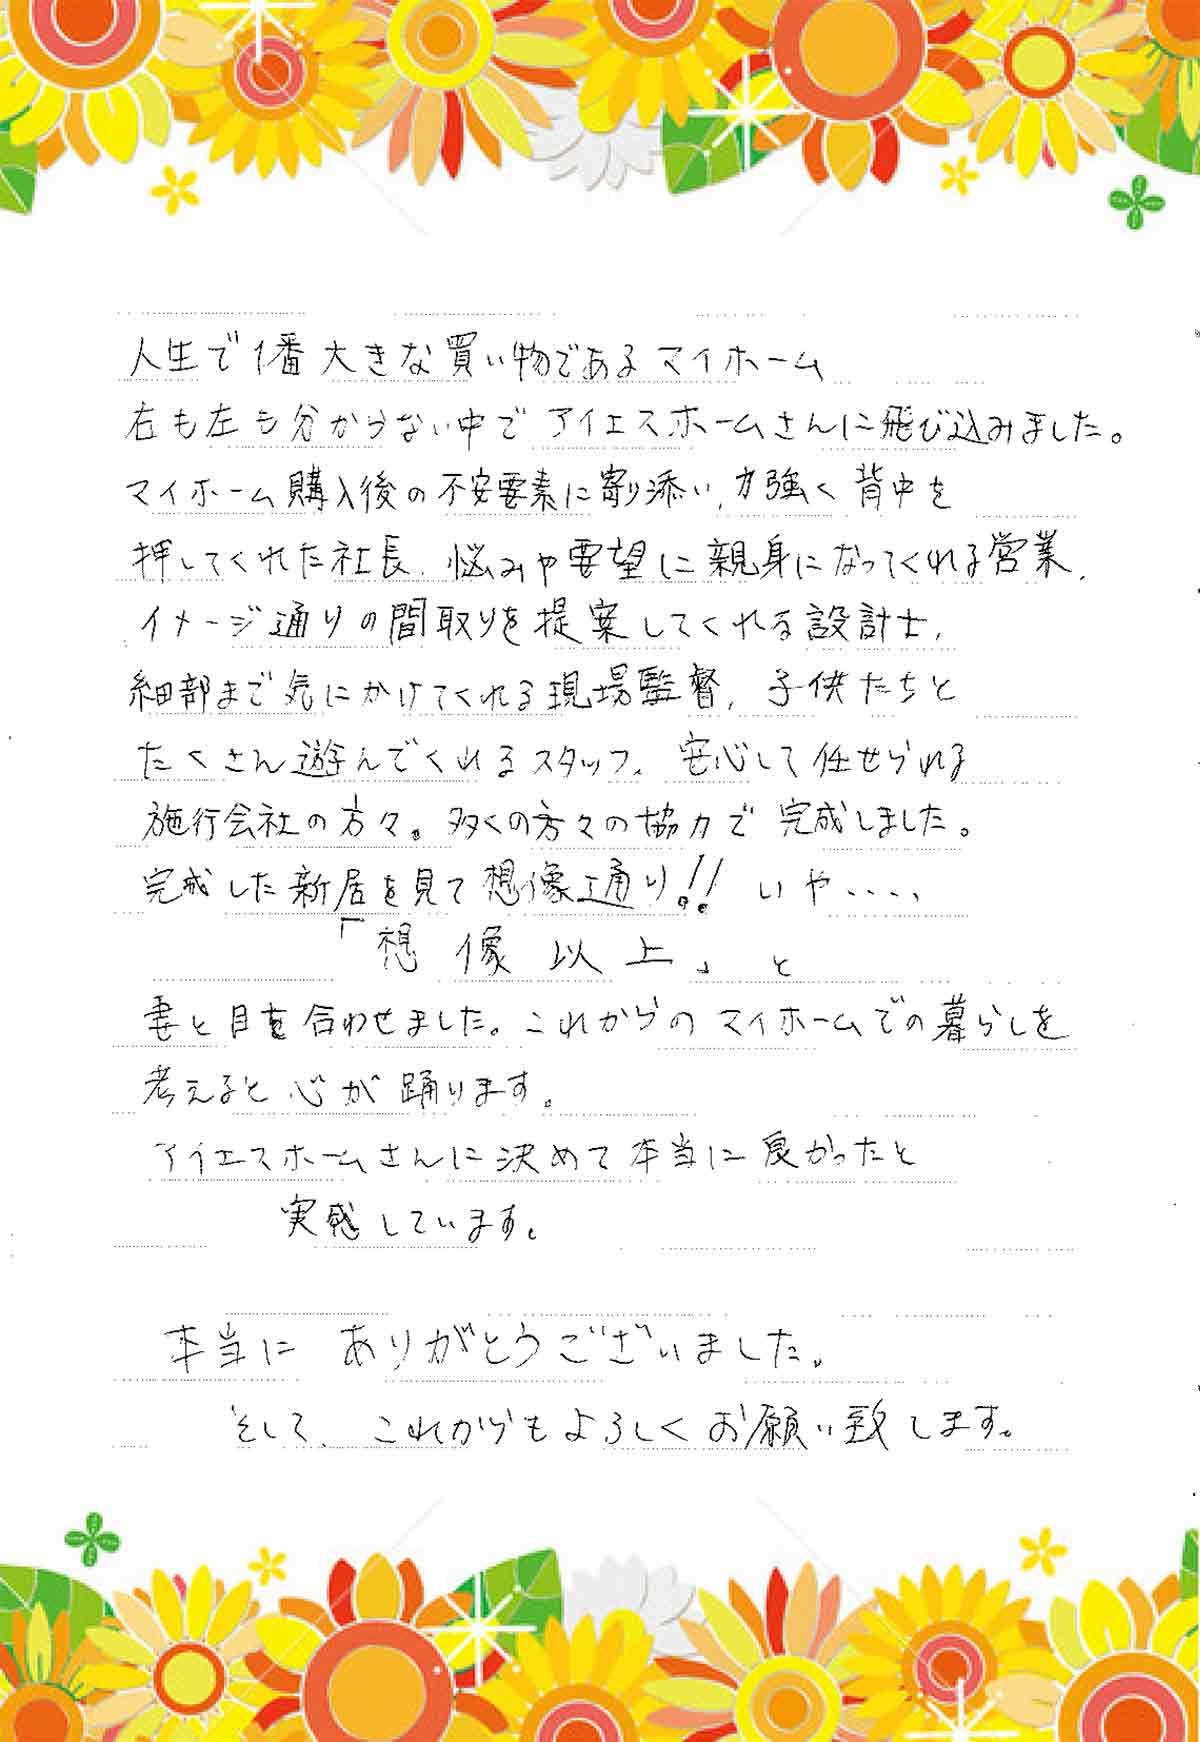 人生で1番大きな買い物であるマイホーム
右も左も分からない中でアイエスホームさんに飛び込みました。
マイホーム購入後の不安要素に寄り添い、力強く背中を
押してくれた社長、悩みや要望に親身になってくれる営業、
イメージ通りの間取りを提案してくれる設計士、
細部まで気にかけてくれる現場監督、子供たちと
たくさん遊んでくれるスタッフ、安心して任せられる
施行会社の方々。多くの方々の協力で完成しました。
完成した新居を見て想像通り!! いや・・・・、
「想像以上」と
妻と目を合わせました。これからのマイホームでの暮らしを
考えると心が踊ります。
アイエスホームさんに決めて本当に良かったと
実感しています。
本当に ありがとうございました。
そして、これからもよろしくお願い致します。